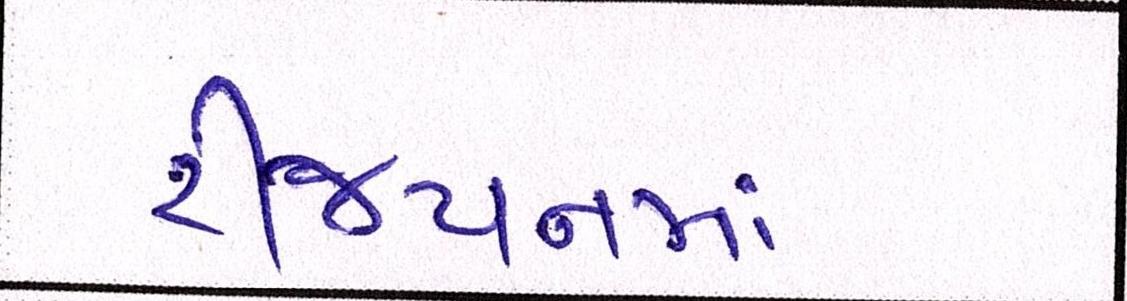 રીજયનમાં